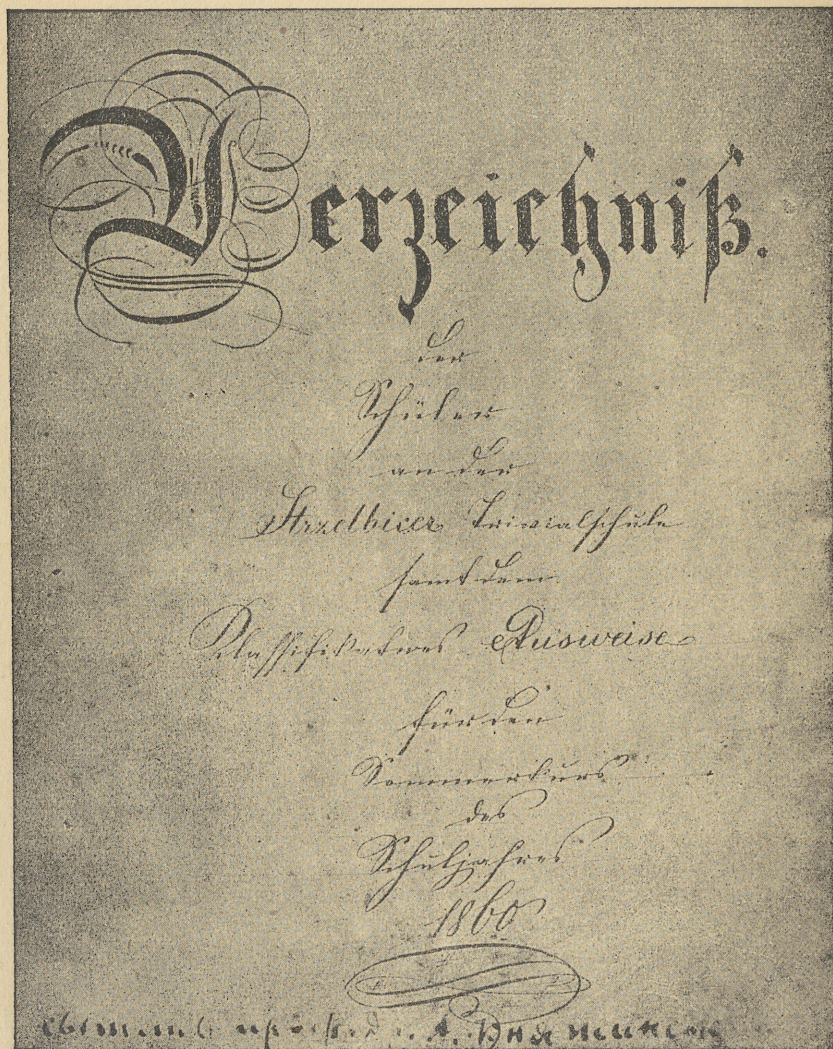 Verzeichniß.
der
Schüler
an der
Strzelbicer Trivialschule
samt dem
Klassifikations Ausweise
für den
Sommerkurs
des
Schuljahres
1860